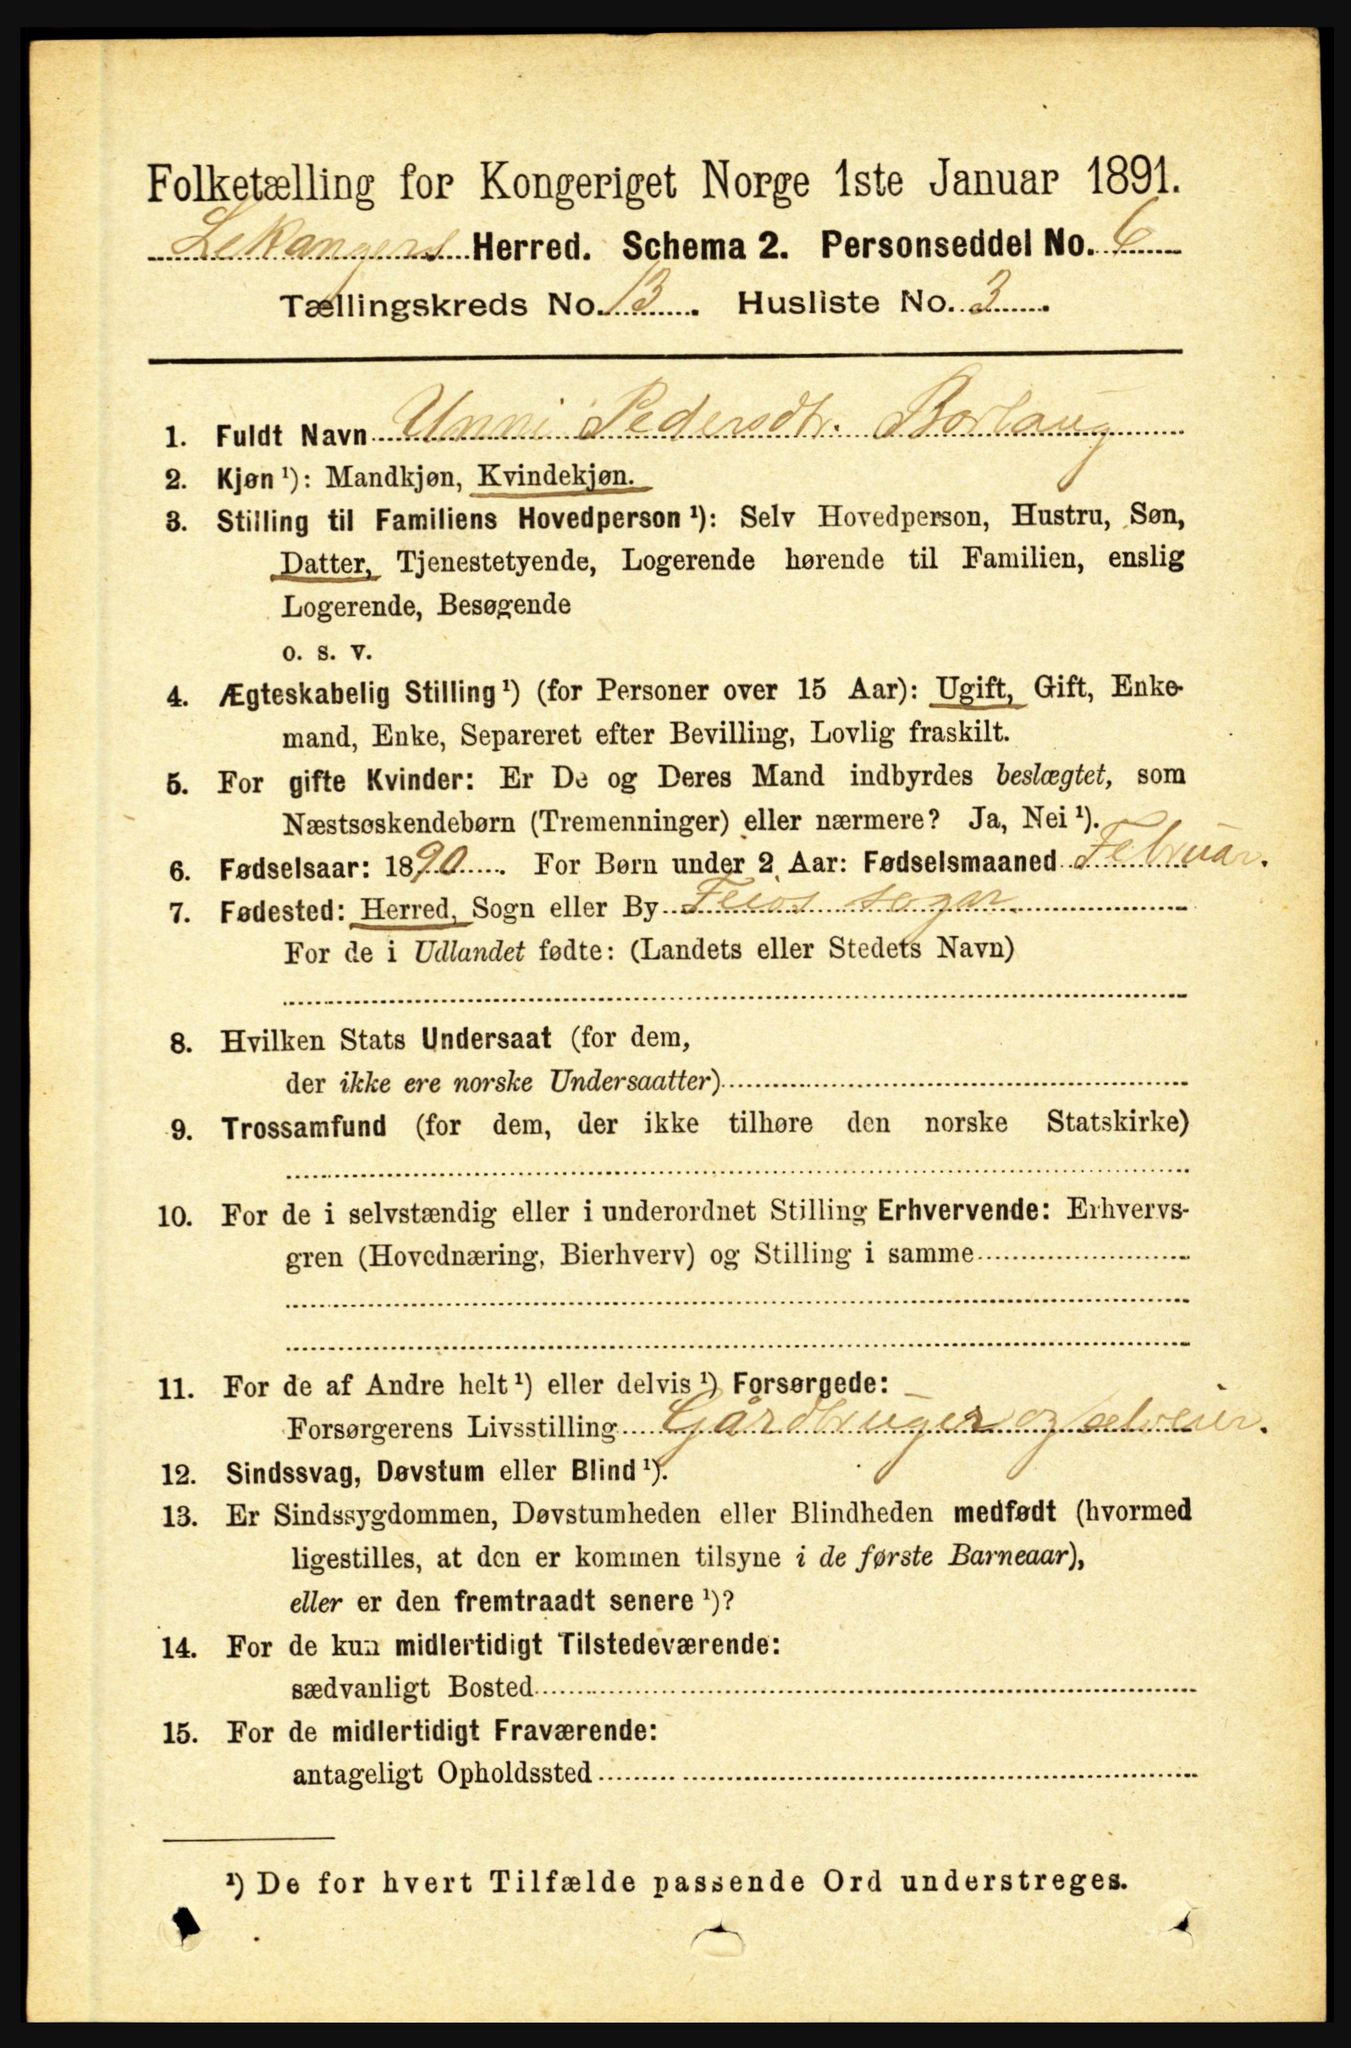 Folketælling for Kongeriget Norge 1ste Januar 1891.
Lekangers Herred. Schema 2. Personseddel No. 6
Tællingskreds No. 13. Husliste No. 3.
1. Fuldt Navn Unni Pedersdtr. Borlaug
2. Kjøn ¹): Mandkjøn, Kvindekjøn.
3. Stilling til Familiens Hovedperson ¹): Selv Hovedperson, Hustru, Søn,
Datter, Tjenestetyende, Logerende hørende til Familien, enslig
Logerende, Besøgende
o. s. v.
4. Ægteskabelig Stilling ¹) (for Personer over 15 Aar): Ugift, Gift, Enke-
mand, Enke, Separeret efter Bevilling, Lovlig fraskilt.
5. For gifte Kvinder: Er De og Deres Mand indbyrdes beslægtet, som
Næstsøskendebørn (Tremenninger) eller nærmere? Ja, Nei ¹).
6. Fødselsaar: 1890. For Børn under 2 Aar: Fødselsmaaned Februar.
7. Fødested: Herred, Sogn eller By Feios sogn.
For de i Udlandet fødte: (Landets eller Stedets Navn)
8. Hvilken Stats Undersaat (for dem,
der ikke ere norske Undersaatter)
9. Trossamfund (for dem, der ikke tilhøre den norske Statskirke)
10. For de i selvstændig eller i underordnet Stilling Erhvervende: Erhvervs-
gren (Hovednæring, Bierhverv) og Stilling i samme
11. For de af Andre helt ¹) eller delvis ¹) Forsørgede:
Forsørgerens Livsstilling Gårdbruger og selveier.
12. Sindssvag, Døvstum eller Blind ¹).
13. Er Sindssygdommen, Døvstumheden eller Blindheden medfødt (hvormed
ligestilles, at den er kommen tilsyne i de første Barneaar),
eller er den fremtraadt senere ¹)?
14. For de kun midlertidigt Tilstedeværende:
sædvanligt Bosted
15. For de midlertidigt Fraværende:
antageligt Opholdssted
¹) De for hvert Tilfælde passende Ord understreges.